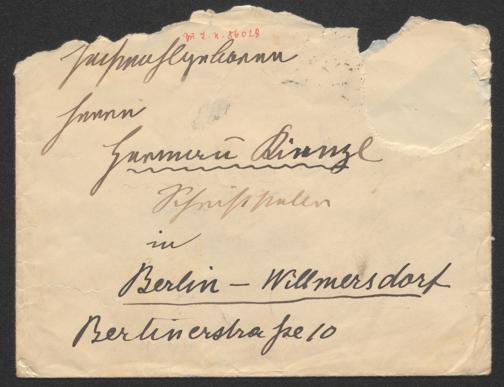 Hochwohlgeboren
Herrn
Hermann Kienzl
Schriftsteller
in
Berlin – Willmersdorf
Berlinerstraße 10